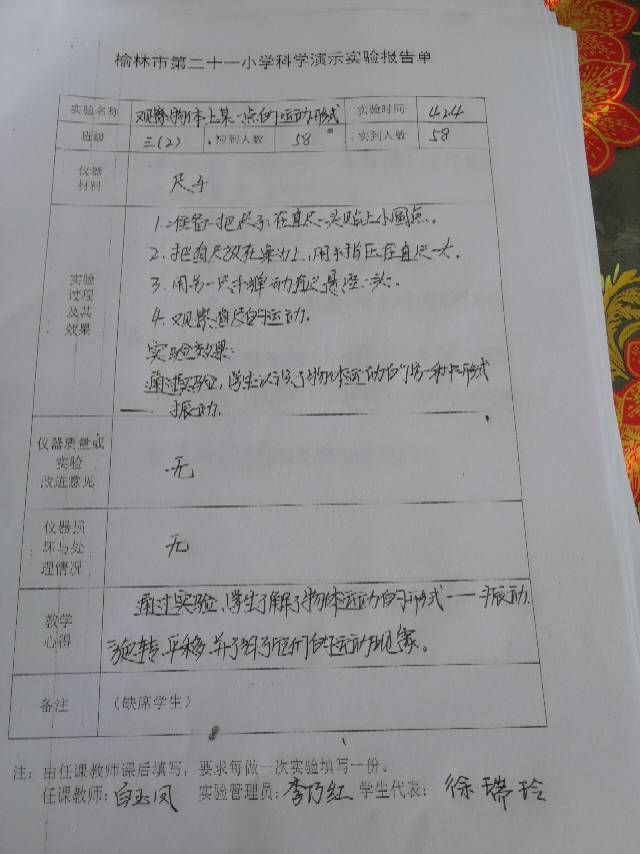 榆林市第二十一小学科学演示实验报告单
实验名称 观察物体上某一点的运动形式 实验时间 4.24
班级 三(2) 应到人数 58 实到人数 58
仪器材料 尺子
实验过程及其效果
1. 准备一把尺子在直尺一头贴上小圆点。
2. 把直尺放在桌边上,用手指压在直尺一头。
3. 用另一只手弹动直尺悬空一头。
4. 观察直尺的运动。
实验效果:
通过实验,学生认识了物体运动的另一种形式
——振动.
仪器质量或实验改进意见 无
仪器损坏与处理情况 无
教学心得
通过实验,学生了解了物体运动的形式——振动.
旋转.平移.并了解了它们的运动现象。
备注 (缺席学生)
注:由任课教师课后填写,要求每做一次实验填写一份。
任课教师:白玉凤 实验管理员:李乃红 学生代表:徐瑞玲